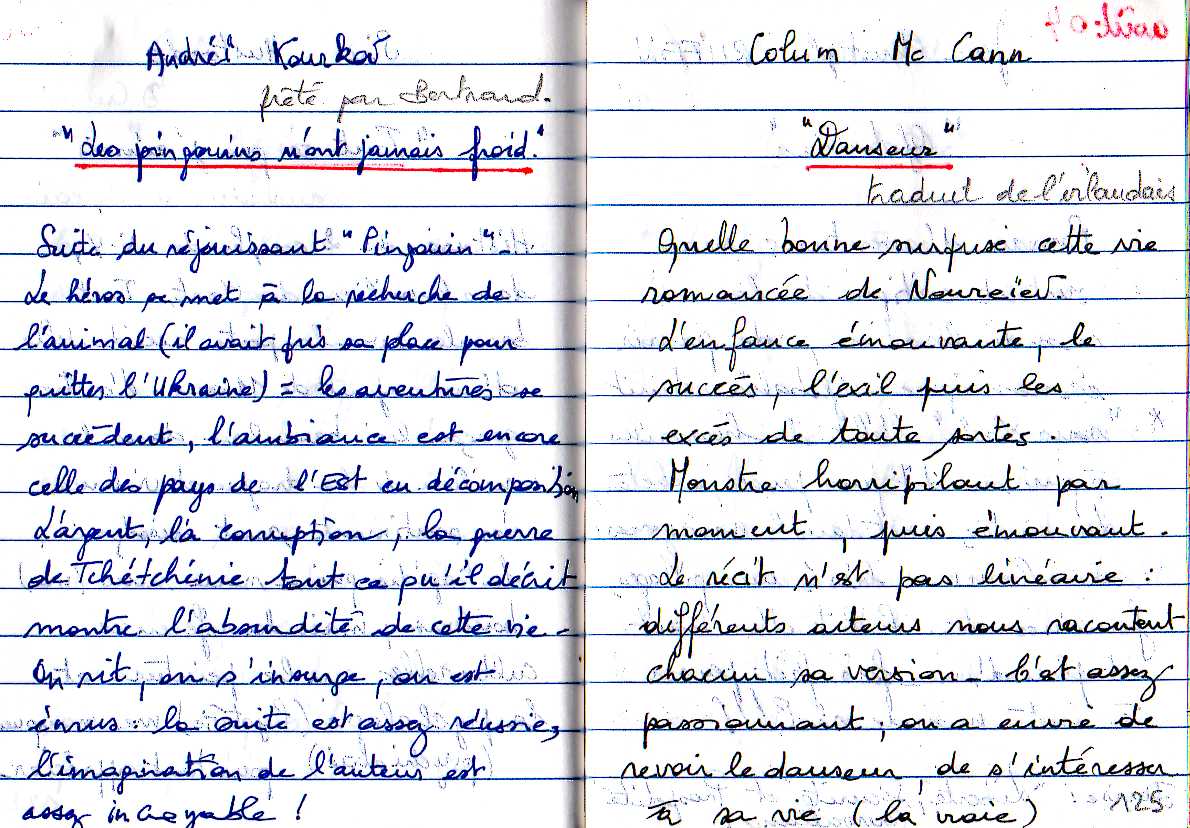 Andréï Kourkov
prêté par Bertrand.
"Les pingouins n'ont jamais froid."
Suite du réjouissant "Pingouin" -
Le héros se met à la recherche de
l'animal (il avait pris sa place pour
quitter l'Ukraine) = les aventures se
succèdent, l'ambiance est encore
celle des pays de l'Est en décomposition
L'argent, la corruption, la guerre
de Tchétchénie tout ce qu'il décrit
montre l'absurdité de cette vie -
On rit, on s'insurge, on est
émus : la suite est assez réussie,
l'imagination de l'auteur est
assez incroyable !
août 07
Colum Mc Cann
"Danseur"
traduit de l'irlandais
Quelle bonne surprise cette vie
romancée de Noureïev.
L'enfance émouvante, le
succés, l'exil puis les
excés de toute sortes.
Monstre horripilant par
moment, puis émouvant.
Le récit n'est pas linéaire :
différents acteurs nous racontent
chacun sa version - C'est assez
passionnant, on a envie de
revoir le danseur, de s'intéresser
à sa vie (la vraie)
125